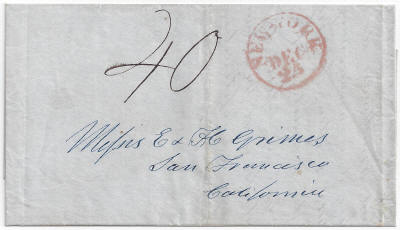 40
NEW-YORK
DEC
25
Messrs E & H Grimes
San Francisco
California